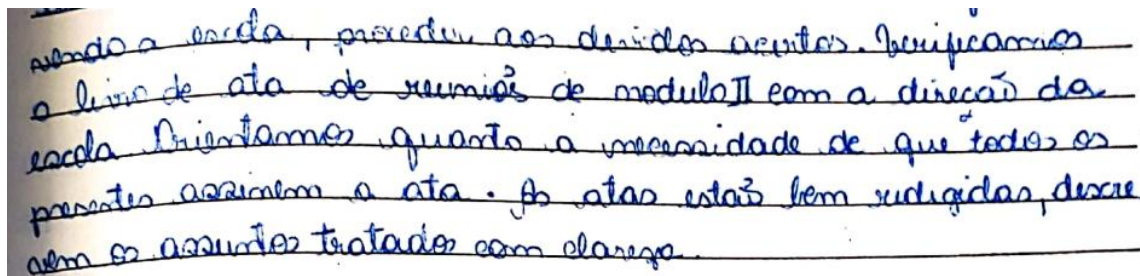 vendo a escola, procedeu aos devidos acertos. Verificamos
o livro de ata de reuniões de modulo II com a direção da
escola Orientamos quanto a necessidade de que todos os
presentes assinem a ata. As atas estão bem redigidas, descre
vem os assuntos tratados com clareza.